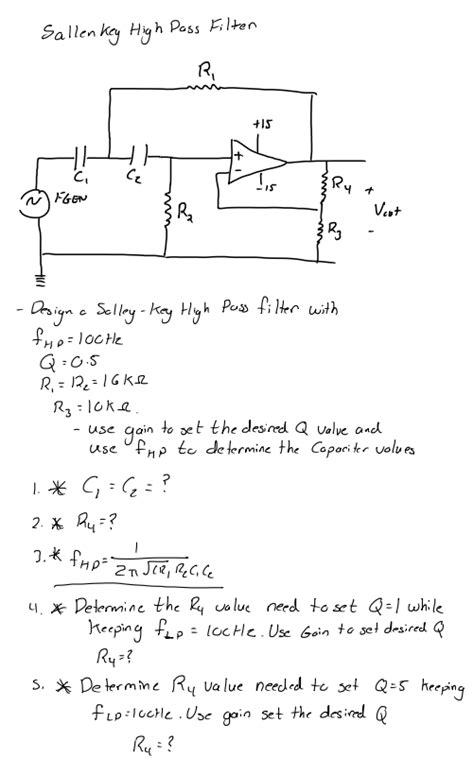 Sallen key High Pass Filter
R1
+15
+
-
-15
C1
C2
FGEN
R2
R4
+
Vout
-
R3
- Design a Salley-Key High Pass filter with
fHP = 100Hz
Q = 0.5
R1 = R2 = 16KΩ
R3 = 10KΩ.
- use gain to set the desired Q value and
use fHP to determine the Capacitor values
1. * C1 = C2 = ?
2. * R4 = ?
3. * fHP = 1 / 2π √(R1 R2 C1 C2
4. * Determine the R4 value need to set Q=1 while
Keeping fLP = 100Hz. Use Gain to set desired Q
R4 = ?
5. * Determine R4 value needed to set Q=5 keeping
fLP = 100Hz. Use gain set the desired Q
R4 = ?